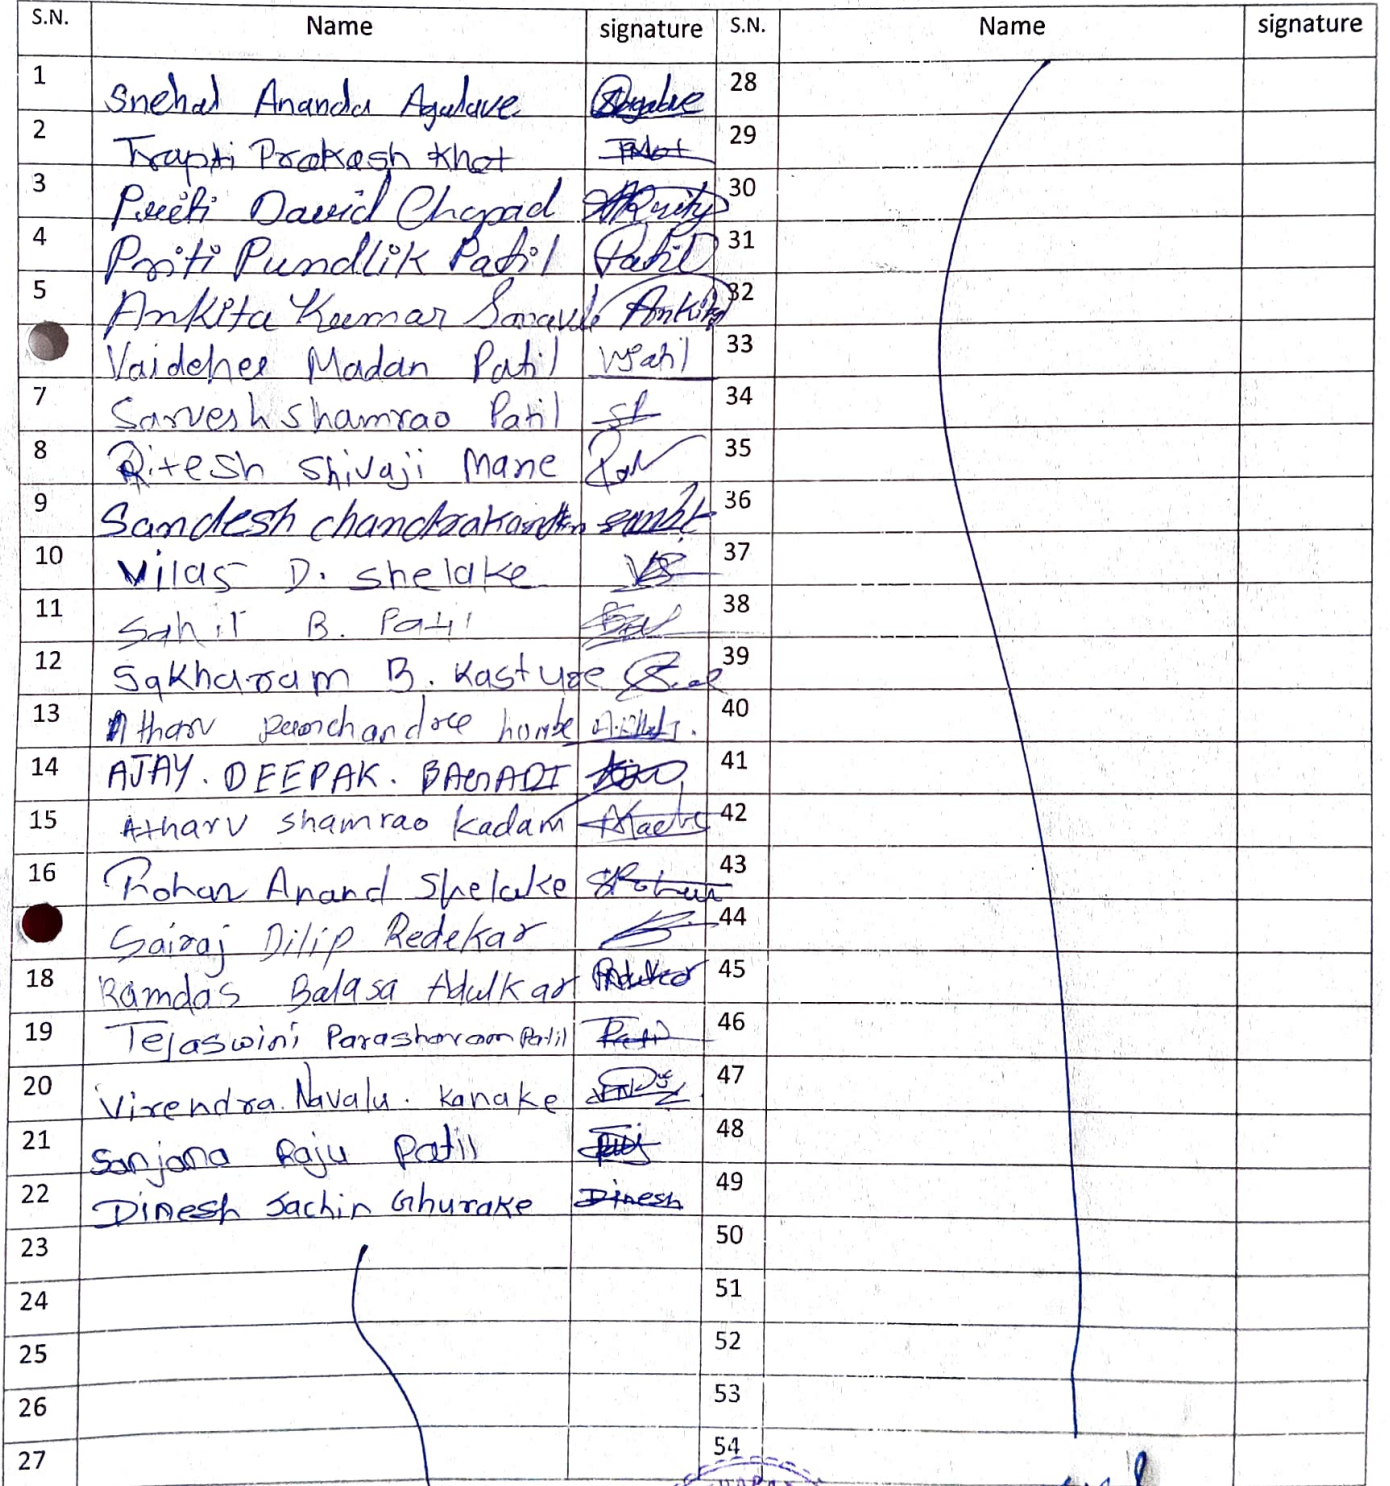 S.N. Name signature S.N. Name signature
1 Snehal Ananda Agalave 28
2 Trapti Prakash Khot 29
3 Preeti David Chopad 30
4 Priti Pundlik Patil Patil 31
5 Ankita Kumar Ankita 32
Vaidehee Madan Patil VPatil 33
7 Sarvesh Shamrao Patil 34
8 Ritesh Shivaji Mane 35
9 Sandesh 36
10 Vilas D. Shelake VS 37
11 Sahil B. Patil 38
12 Sakharam B. Kasture 39
13 Atharv 40
14 AJAY. DEEPAK. BAGADI 41
15 Atharv Shamrao Kadam 42
16 Rohan Anand Shelake 43
Sairaj Dilip Redekar 44
18 Ramdas Balasa Adulkar 45
19 Tejaswini Parasharam Patil 46
20 Virendra. Navalu. Kanake 47
21 Sanjana Raju Patil 48
22 Dinesh Sachin Ghurake Dinesh 49
23 50
24 51
25 52
26 53
27 54